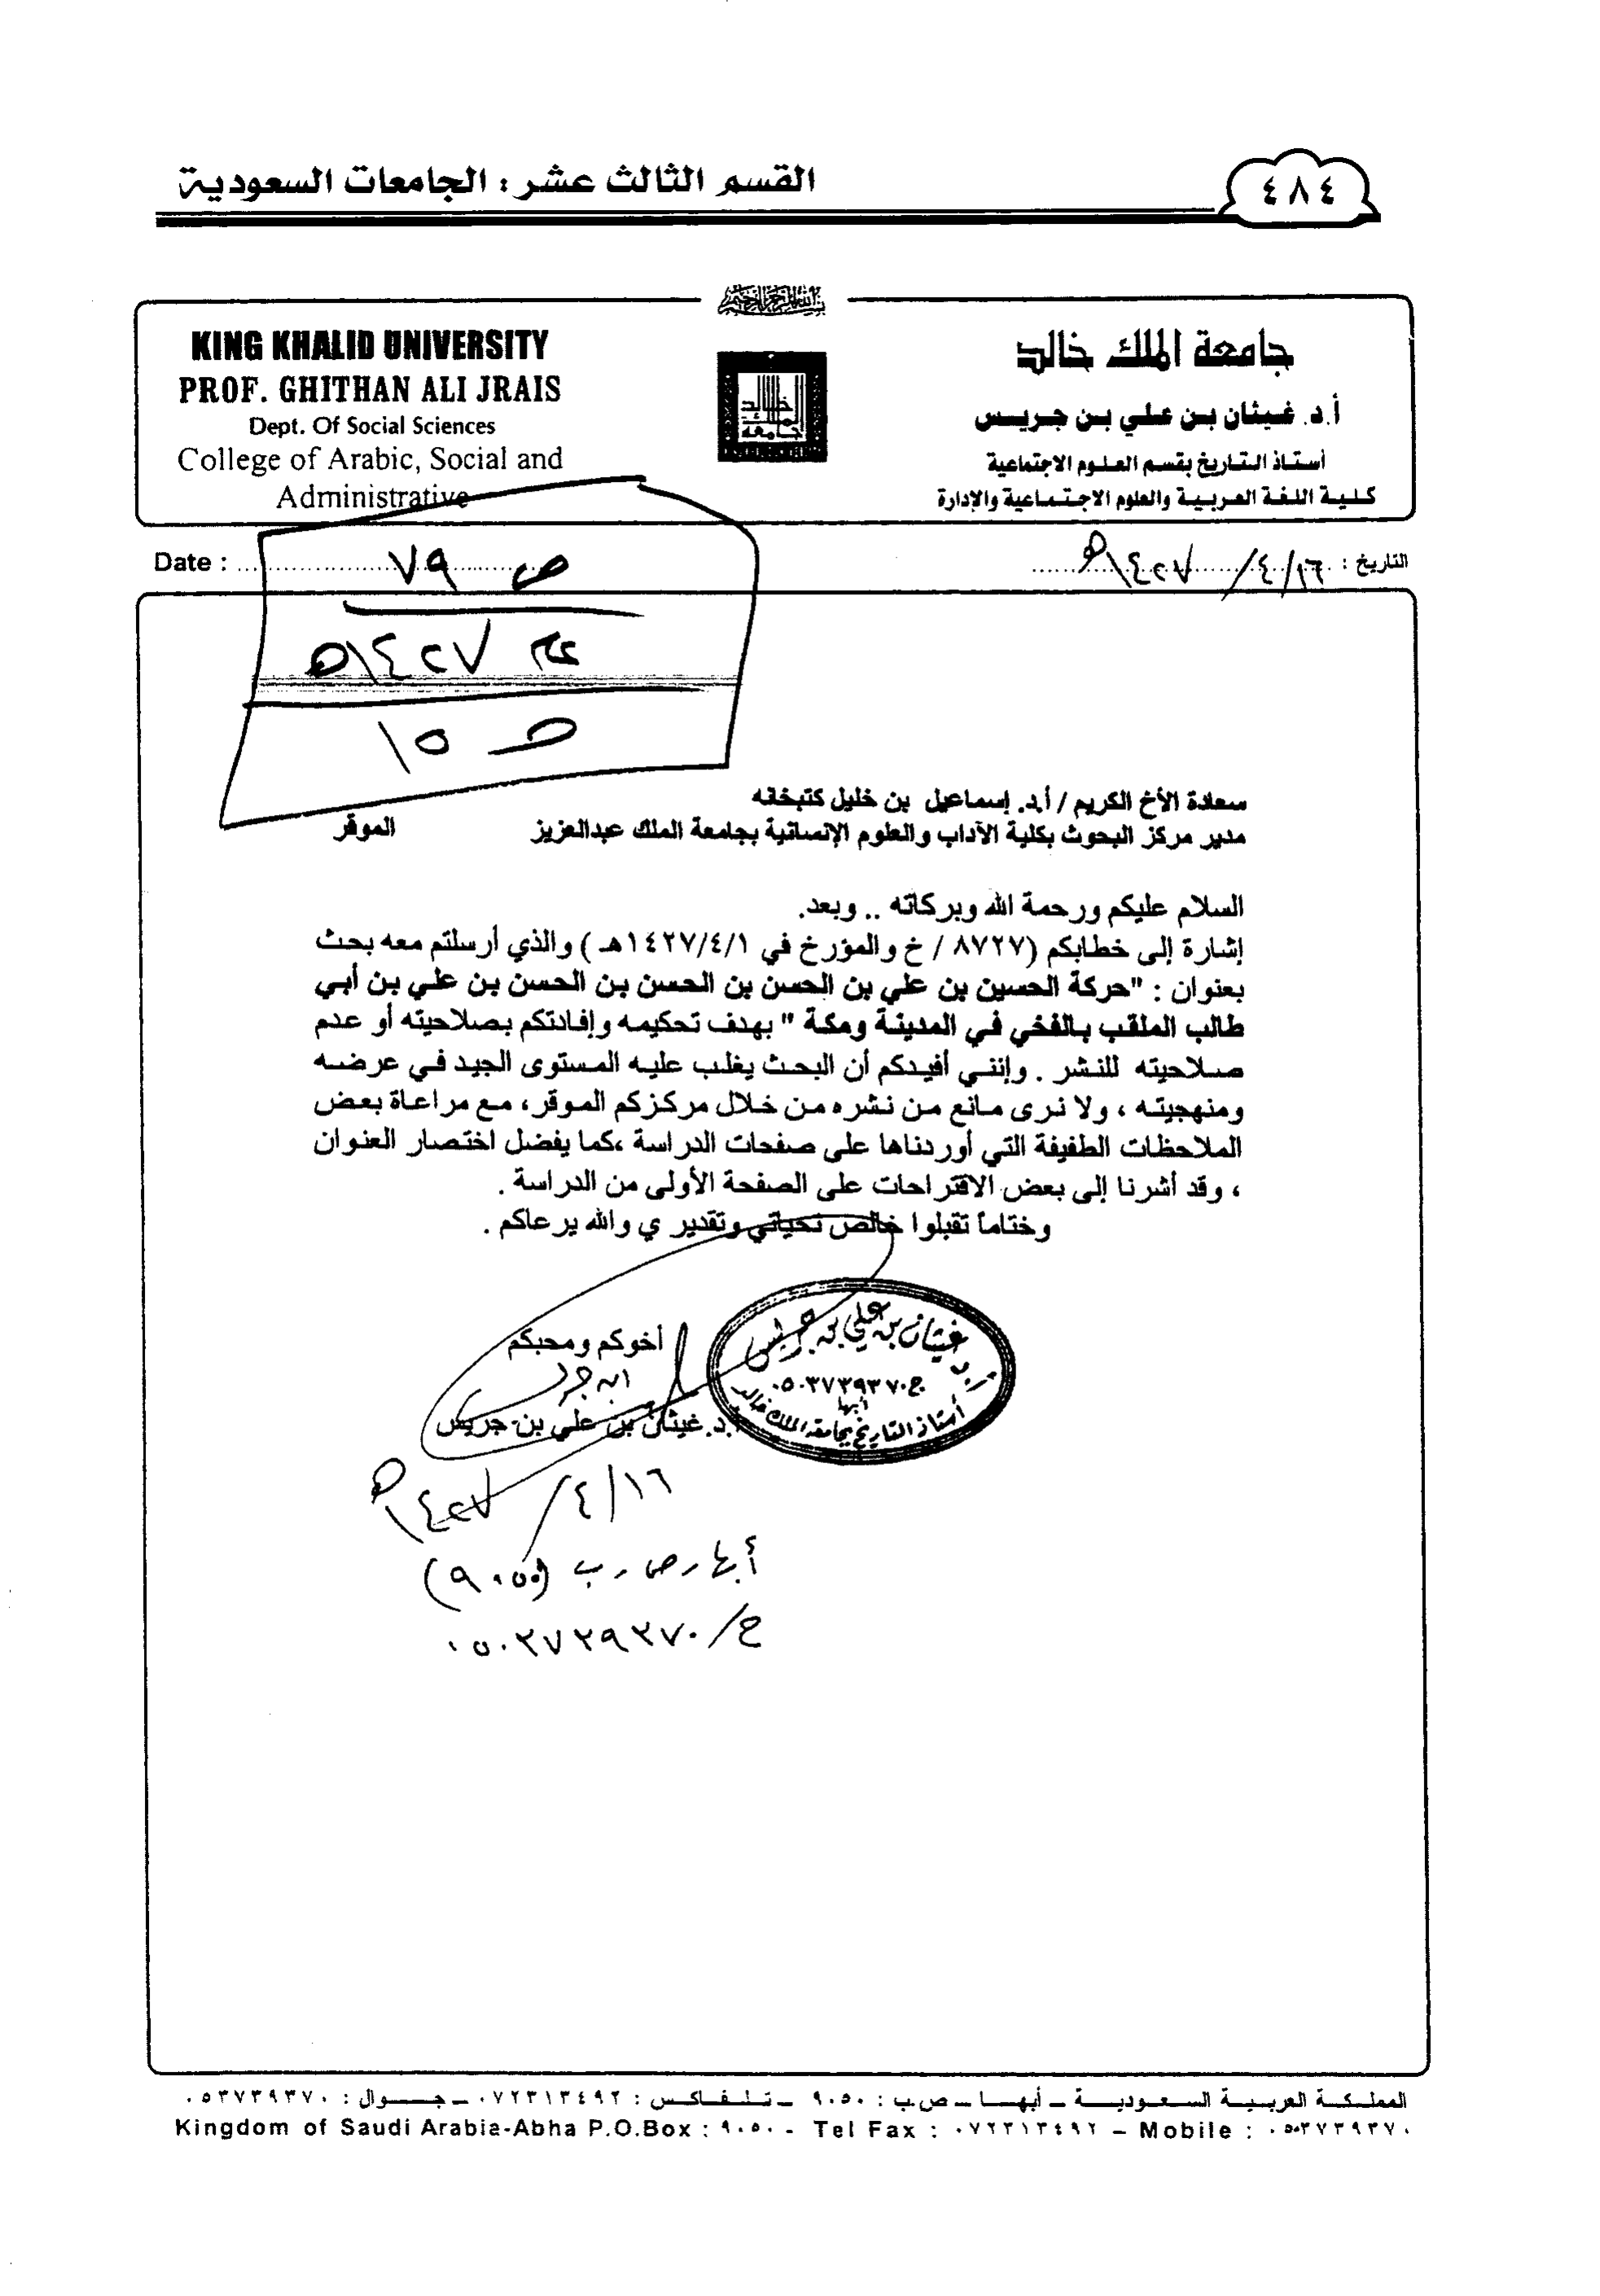 ٤٨٤
القسم الثالث عشر : الجامعات السعودية
بسم الله الرحمن الرحيم
جامعة الملك خالد
أ.د. غيثان بن علي بن جريس
أستاذ التاريخ بقسم العلوم الاجتماعية
كلية اللغة العربية والعلوم الاجتماعية والإدارة
جامعة الملك خالد
KING KHALID UNIVERSITY
PROF. GHITHAN ALI JRAIS
Dept. Of Social Sciences
College of Arabic, Social and
Administrative
التاريخ : ١٦/٤/١٤٢٧هـ
Date :
ص ٧٩
عام ١٤٢٧هـ
ص ١٥
سعادة الأخ الكريم / أ.د. إسماعيل بن خليل كتبخانه
مدير مركز البحوث بكلية الآداب والعلوم الإنسانية بجامعة الملك عبدالعزيز الموقر
السلام عليكم ورحمة الله وبركاته .. وبعد.
إشارة إلى خطابكم (٨٧٢٧ / خ والمؤرخ في ١٤٢٧/٤/١هـ ) والذي أرسلتم معه بحث
بعنوان : "حركة الحسين بن علي بن الحسن بن الحسن بن الحسن بن علي بن أبي
طالب الملقب بالفخي في المدينة ومكة " بهدف تحكيمه وإفادتكم بصلاحيته أو عدم
صلاحيته للنشر . وإنني أفيدكم أن البحث يغلب عليه المستوى الجيد في عرضه
ومنهجيته ، ولا نرى مانع من نشره من خلال مركزكم الموقر، مع مراعاة بعض
الملاحظات الطفيفة التي أوردناها على صفحات الدراسة ،كما يفضل اختصار العنوان
، وقد أشرنا إلى بعض الاقتراحات على الصفحة الأولى من الدراسة .
وختاماً تقبلوا خالص تحياتي وتقدير ي والله يرعاكم .
أخوكم ومحبكم
أ.د. غيثان بن علي بن جريس
أ.د غيثان بن علي بن جريس
ج.٠٥٠٣٧٣٩٣٧٠
أبها
أستاذ التاريخ بجامعة الملك خالد
١٦/٤/١٤٢٧هـ
أبها ـ ص . ب (٩٠٥٠)
ج/ ٠٥٠٣٧٣٩٣٧٠
المملكة العربية السعودية – أبها – ص.ب : ٩٠٥٠ – تلفاكس : ٠٧٢٣١٣٤٩٢ – جوال : ٠٥٣٧٣٩٣٧٠
Kingdom of Saudi Arabia-Abha P.O.Box : ٩٠٥٠ - Tel Fax : ٠٧٢٢٣١٣٤٩٢ – Mobile : ٠٥٠٣٧٣٩٣٧٠